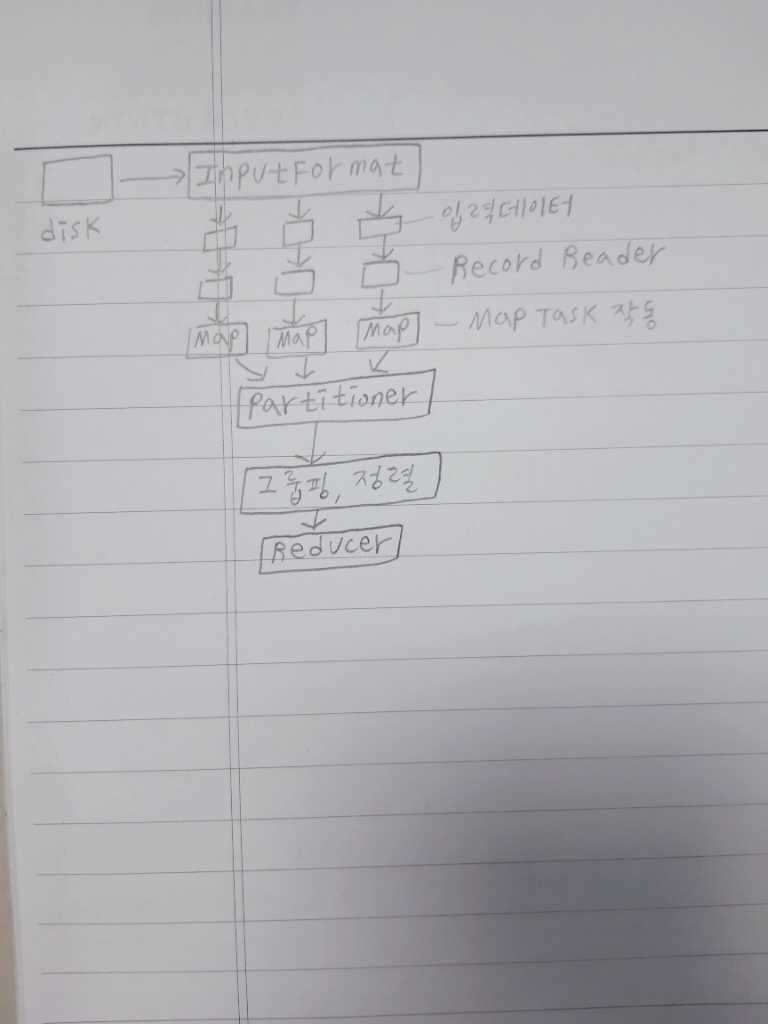 InputFormat
disk
입력데이터
Record Reader
Map Map Map - Map Task 작동
Partitioner
그룹핑, 정렬
Reducer